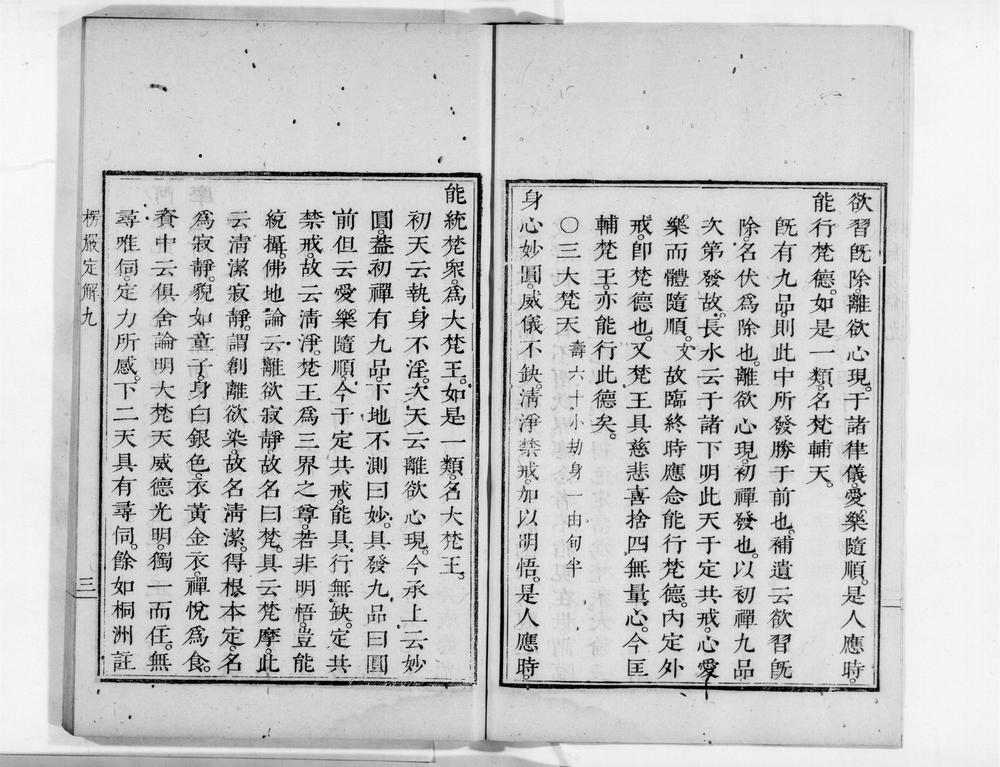 欲習既除。離欲心現。于諸律儀。愛樂隨順。是人應時。
能行梵德。如是一類。名梵輔天。
既有九品。則此中所發勝于前也。補遺云欲習既
除。名伏爲除也。離欲心現。初禪發也。以初禪九品
次第發故。長水云于諸下明此天于定共戒。心愛
樂而體隨順。文故臨終時應念能行梵德。內定外
戒。卽梵德也。又梵王具慈悲喜捨四無量心。今匡
輔梵王。亦能行此德矣。
〇三大梵天 壽六十小劫身一由旬半
身心妙圓。威儀不缺。清淨禁戒。加以明悟。是人應時。
能統梵衆。爲大梵王。如是一類。名大梵王。
初天云執身不淫。次天云離欲心現。今承上云妙
圓。蓋初禪有九品。下地不測曰妙。具發九品曰圓
前但云愛樂隨順。今于定共戒。能具行無缺。定共
禁戒。故云清淨。梵王爲三界之尊。若非明悟。豈能
統攝。佛地論云離欲寂靜。故名曰梵。具云梵摩。此
云清潔寂靜。謂創離欲染。故名清潔。得根本定。名
爲寂靜。貌如童子。身白銀色。衣黃金衣。禪悅爲食。
資中云俱舍論明大梵天威德光明。獨一而住。無
尋唯伺。定力所感。下二天具有尋伺。餘如桐洲註
楞嚴定解九
三